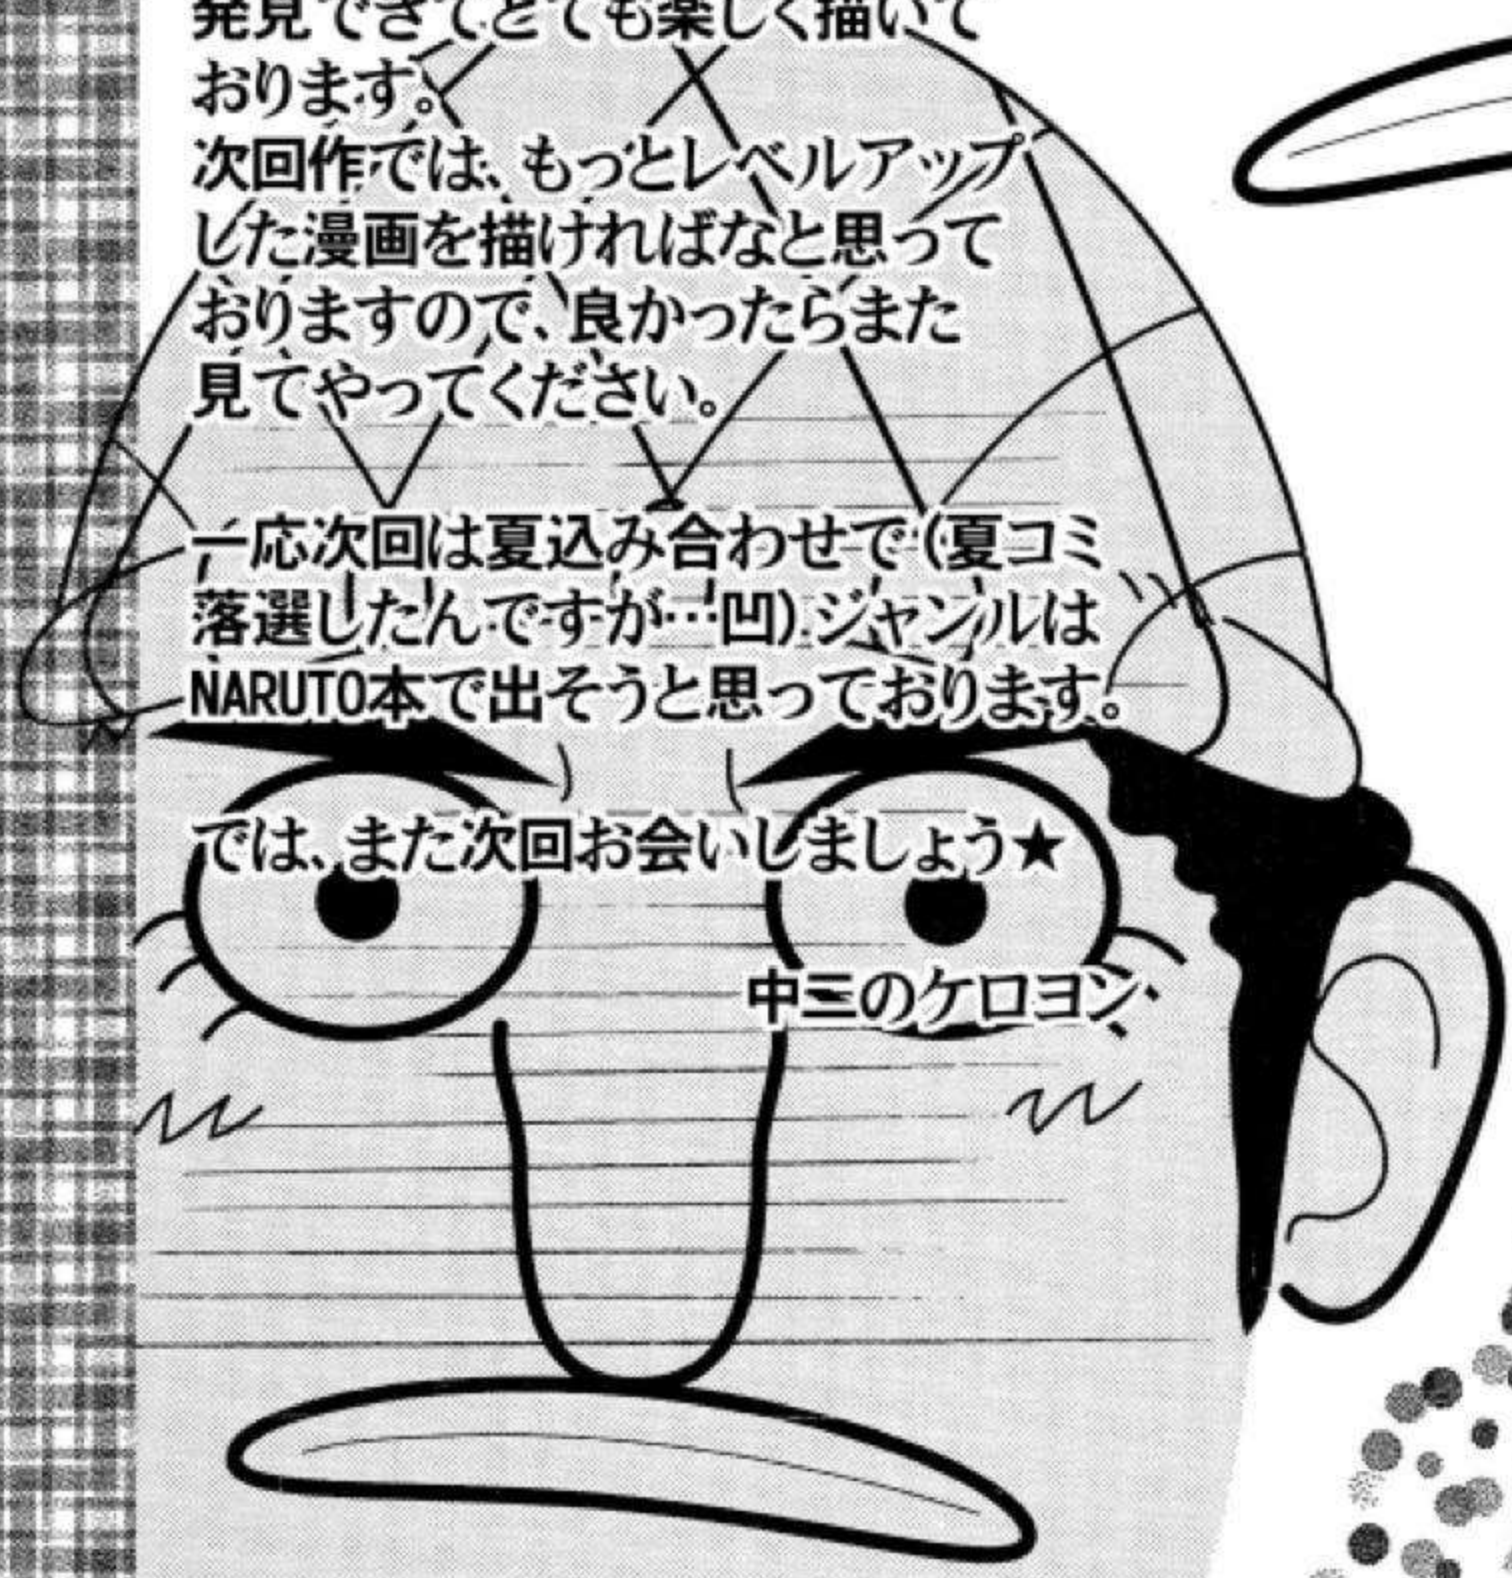 発見できてとても楽しく描いて
おります。
次回作では、もっとレベルアップ
した漫画を描ければなと思って
おりますので、良かったらまた
見てやってください。
一応次回は夏込み合わせで(夏コミ
落選したんですが…凹)ジャンルは
NARUTO本で出そうと思っております。
では、また次回お会いしましょう★
中三のケロヨン